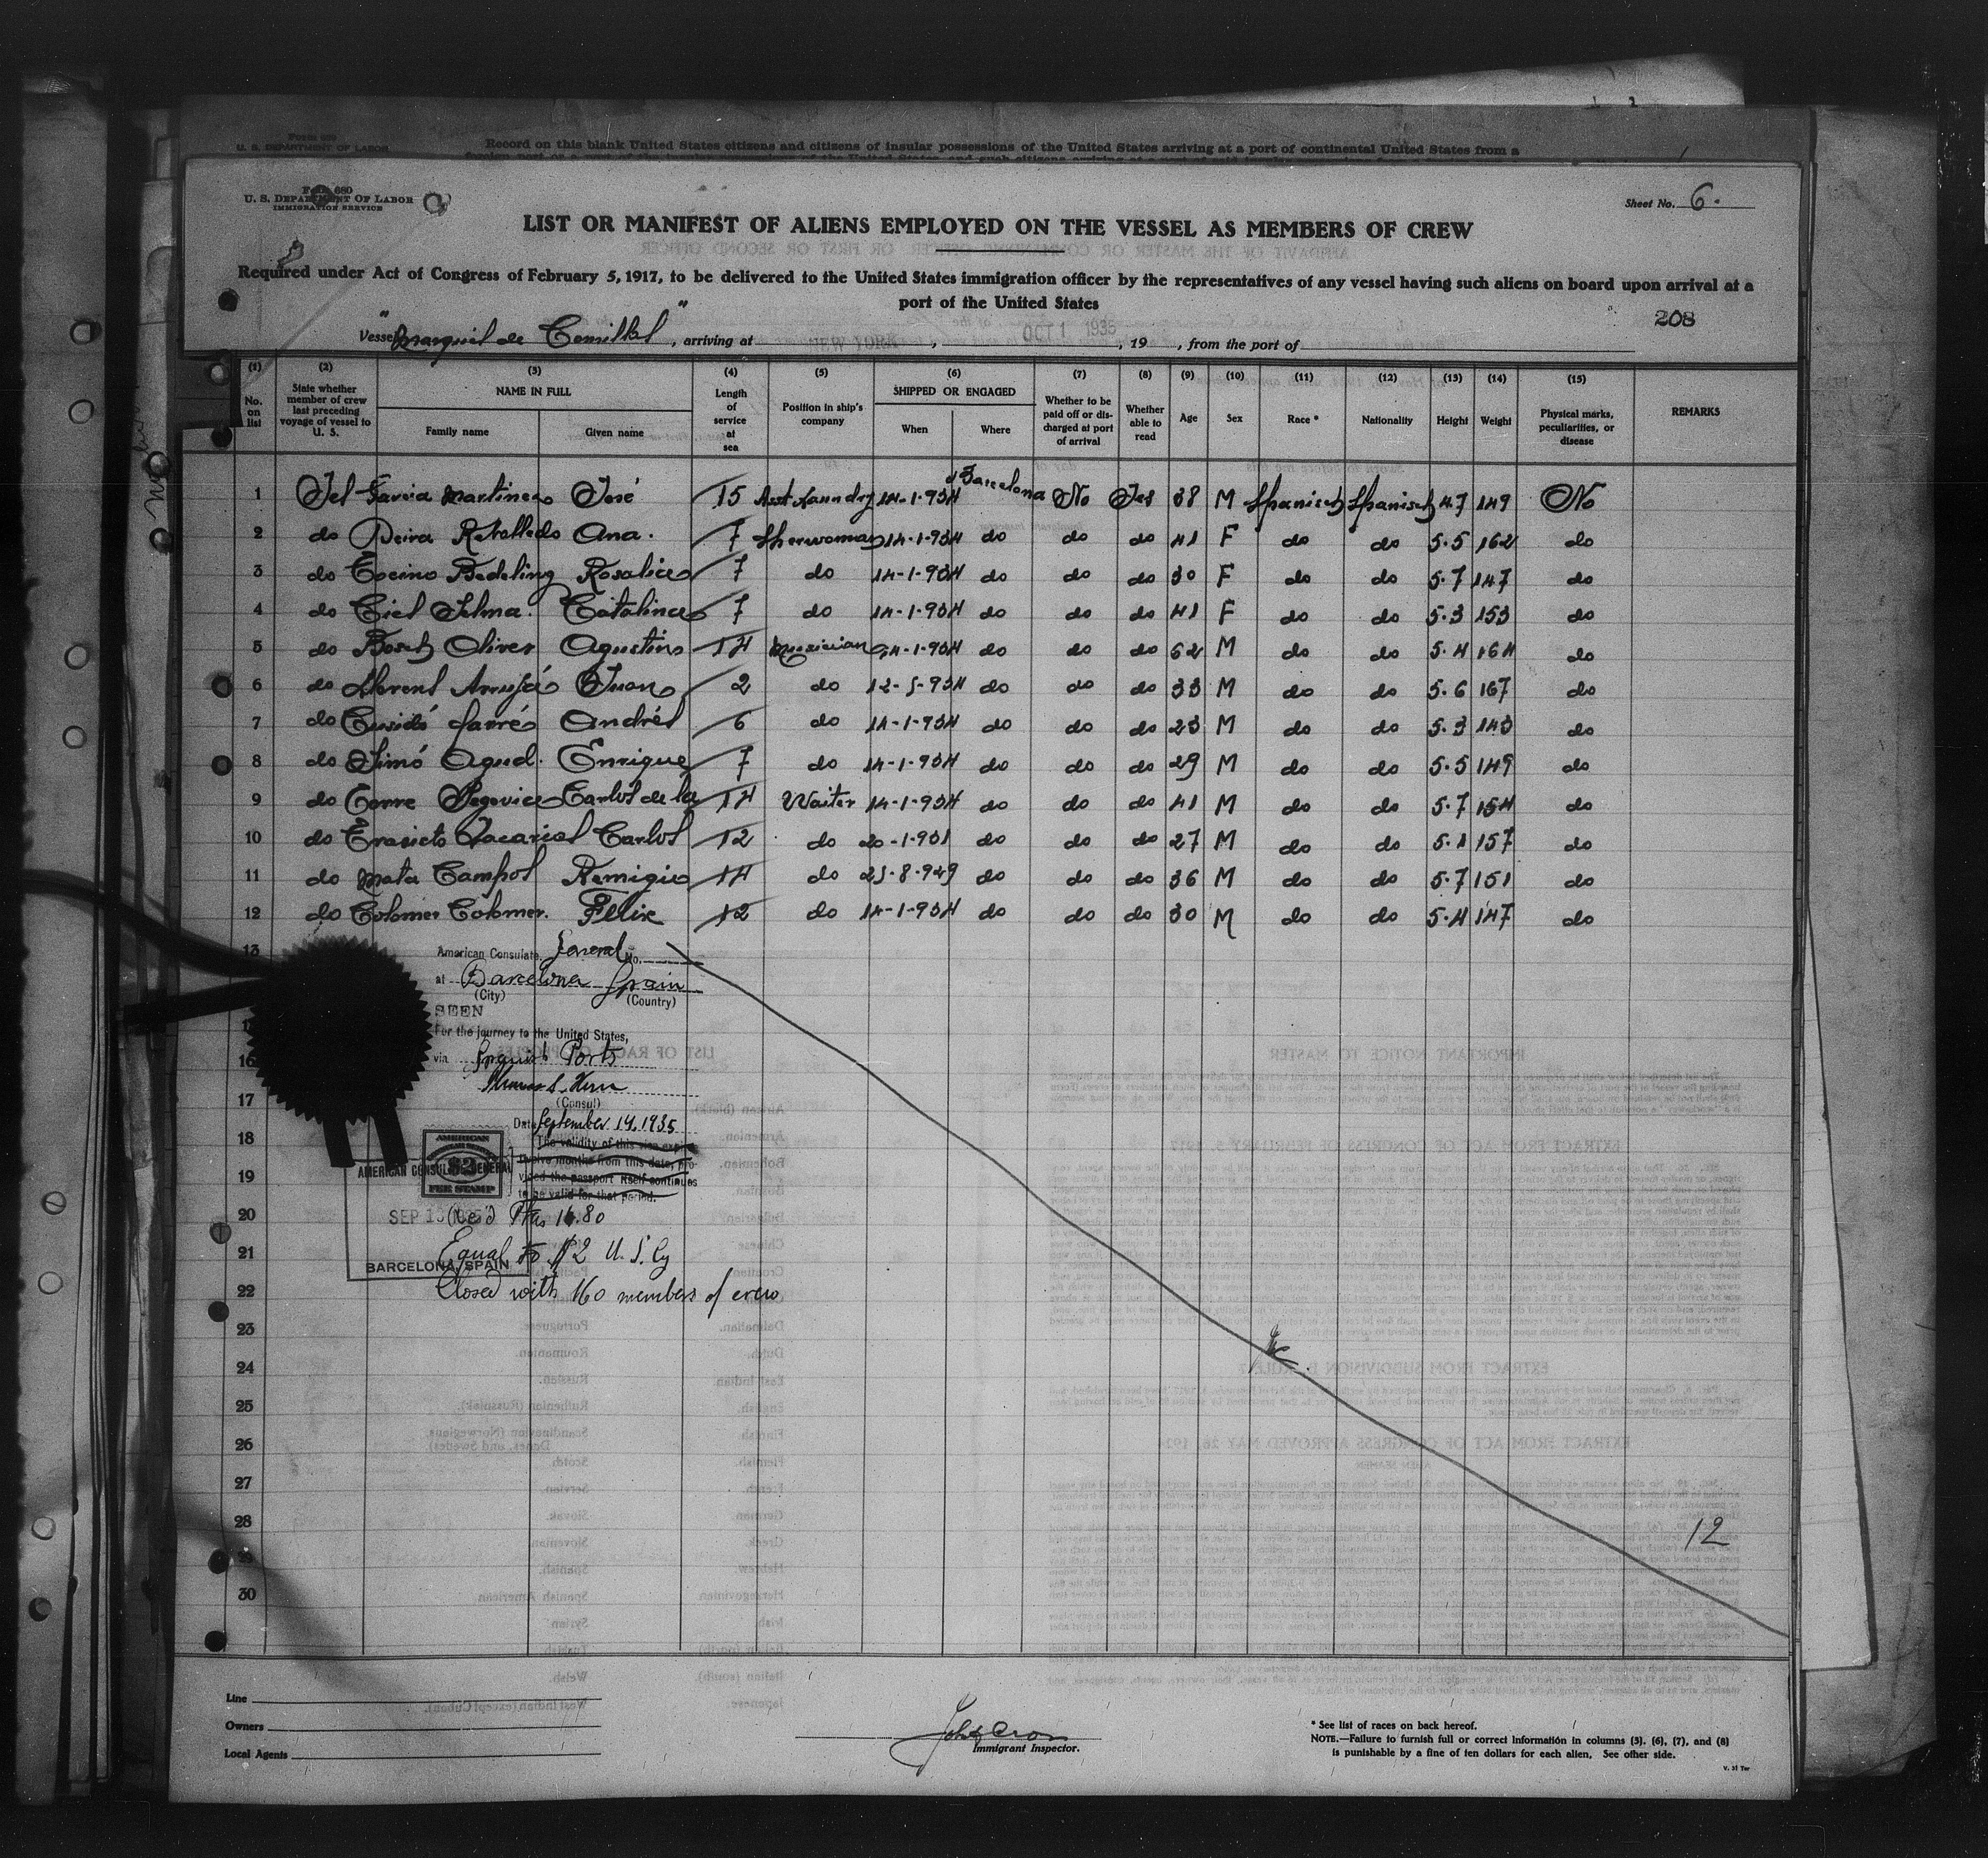 Form 680
U. S. DEPARTMENT OF LABOR
Record on this blank United States citizens and citizens of insular possessions of the United States arriving at a port of continental United States from a
Form 680
U. S. DEPARTMENT OF LABOR
IMMIGRATION SERVICE
Sheet No. 6.
LIST OR MANIFEST OF ALIENS EMPLOYED ON THE VESSEL AS MEMBERS OF CREW
Required under Act of Congress of February 5, 1917, to be delivered to the United States immigration officer by the representatives of any vessel having such aliens on board upon arrival at a
port of the United States
208
Vessel "Marqués de Comillas", arriving at NEW YORK, OCT 1 1935, 19 , from the port of
(1) (2) (3) (4) (5) (6) (7) (8) (9) (10) (11) (12) (13) (14) (15)
No. on list
State whether member of crew last preceding voyage of vessel to U. S.
NAME IN FULL
Family name
Given name
Length of service at sea
Position in ship's company
SHIPPED OR ENGAGED
When
Where
Whether to be paid off or discharged at port of arrival
Whether able to read
Age
Sex
Race *
Nationality
Height
Weight
Physical marks, peculiarities, or disease
REMARKS
1 Garcia Martinez José 15 Asst Laundry 14-1-934 Barcelona No Yes 38 M Spanish Spanish 4.7 149 No
2 do Ana. 7 14-1-934 do do do 41 F do do 5.5 162 do
3 do Rosalia 7 do 14-1-934 do do do 30 F do do 5.7 147 do
4 do Catalina 7 do 14-1-934 do do do 41 F do do 5.3 153 do
5 do Bosch Oliver Agustin 14 Musician 14-1-934 do do do 62 M do do 5.4 164 do
6 do Llorens Juan 2 do 12-5-934 do do do 33 M do do 5.6 167 do
7 do Cusidó Andrés 6 do 14-1-934 do do do 23 M do do 5.3 143 do
8 do Simó Enrique 7 do 14-1-934 do do do 29 M do do 5.5 149 do
9 do Torre Segovia Carlos de la 14 Waiter 14-1-934 do do do 41 M do do 5.7 154 do
10 do Carlos 12 do 20-1-931 do do do 27 M do do 5.1 157 do
11 do Mata Campos Remigio 14 do 25-8-929 do do do 36 M do do 5.7 151 do
12 do Colomer Colomer. Felix 12 do 14-1-934 do do do 30 M do do 5.4 147 do
13
American Consulate General No.
at Barcelona Spain
(City) (Country)
SEEN
For the journey to the United States,
16
via Spanish Ports
17
(Consul)
Date September 14, 1935
18
The validity of this visa expires
twelve months from this date, pro-
vided the passport itself continues
to be valid for that period.
AMERICAN
$2
FEE STAMP
AMERICAN CONSULATE GENERAL
19
20
SEP 13
Rec'd Ptas 14.80
21
Equal to $2 U. S. Cy
BARCELONA, SPAIN
22
Closed with 160 members of crew
23
24
25
26
27
28
12
29
30
Line
Owners
Local Agents
Immigrant Inspector.
* See list of races on back hereof.
NOTE.—Failure to furnish full or correct information in columns (3), (6), (7), and (8)
is punishable by a fine of ten dollars for each alien. See other side.